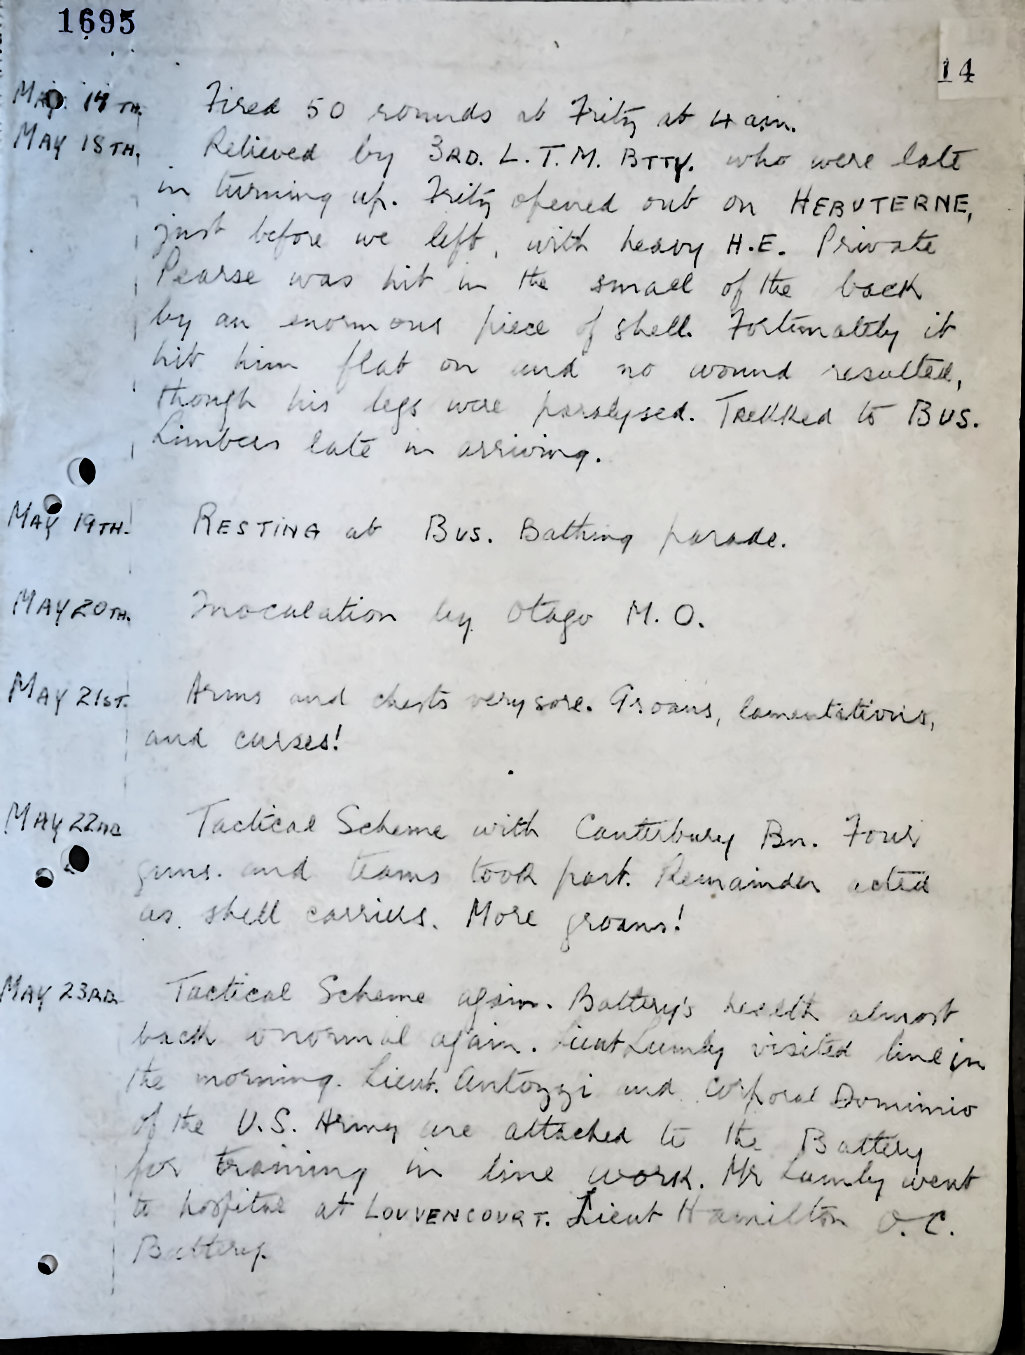 1695
14
MAY 17TH. Fired 50 rounds at Fritz at 4 a.m.
MAY 18TH. Relieved by 3RD. L.T.M. BTTY. who were late
in turning up. Fritz opened out on HEBUTERNE,
just before we left, with heavy H.E. Private
Pearse was hit in the small of the back
by an enormous piece of shell. Fortunately it
hit him flat on and no wound resulted,
though his legs were paralysed. Trekked to BUS.
Limbers late in arriving.
MAY 19TH. RESTING at BUS. Bathing parade.
MAY 20TH. Inoculation by Otago M.O.
MAY 21ST. Arms and chests very sore. Groans, lamentations,
and curses!
MAY 22ND Tactical Scheme with Canterbury Bn. Four
guns. and teams took part. Remainder acted
as shell carriers. More groans!
MAY 23RD. Tactical Scheme again. Battery's health almost
back to normal again. Lieut Lumby visited line in
the morning. Lieut. Antozzi and Corporal Dominio
of the U.S. Army are attached to the Battery
for training in line work. Mr Lumby went
to hospital at LOUVENCOURT. Lieut Hamilton O.C.
Battery.